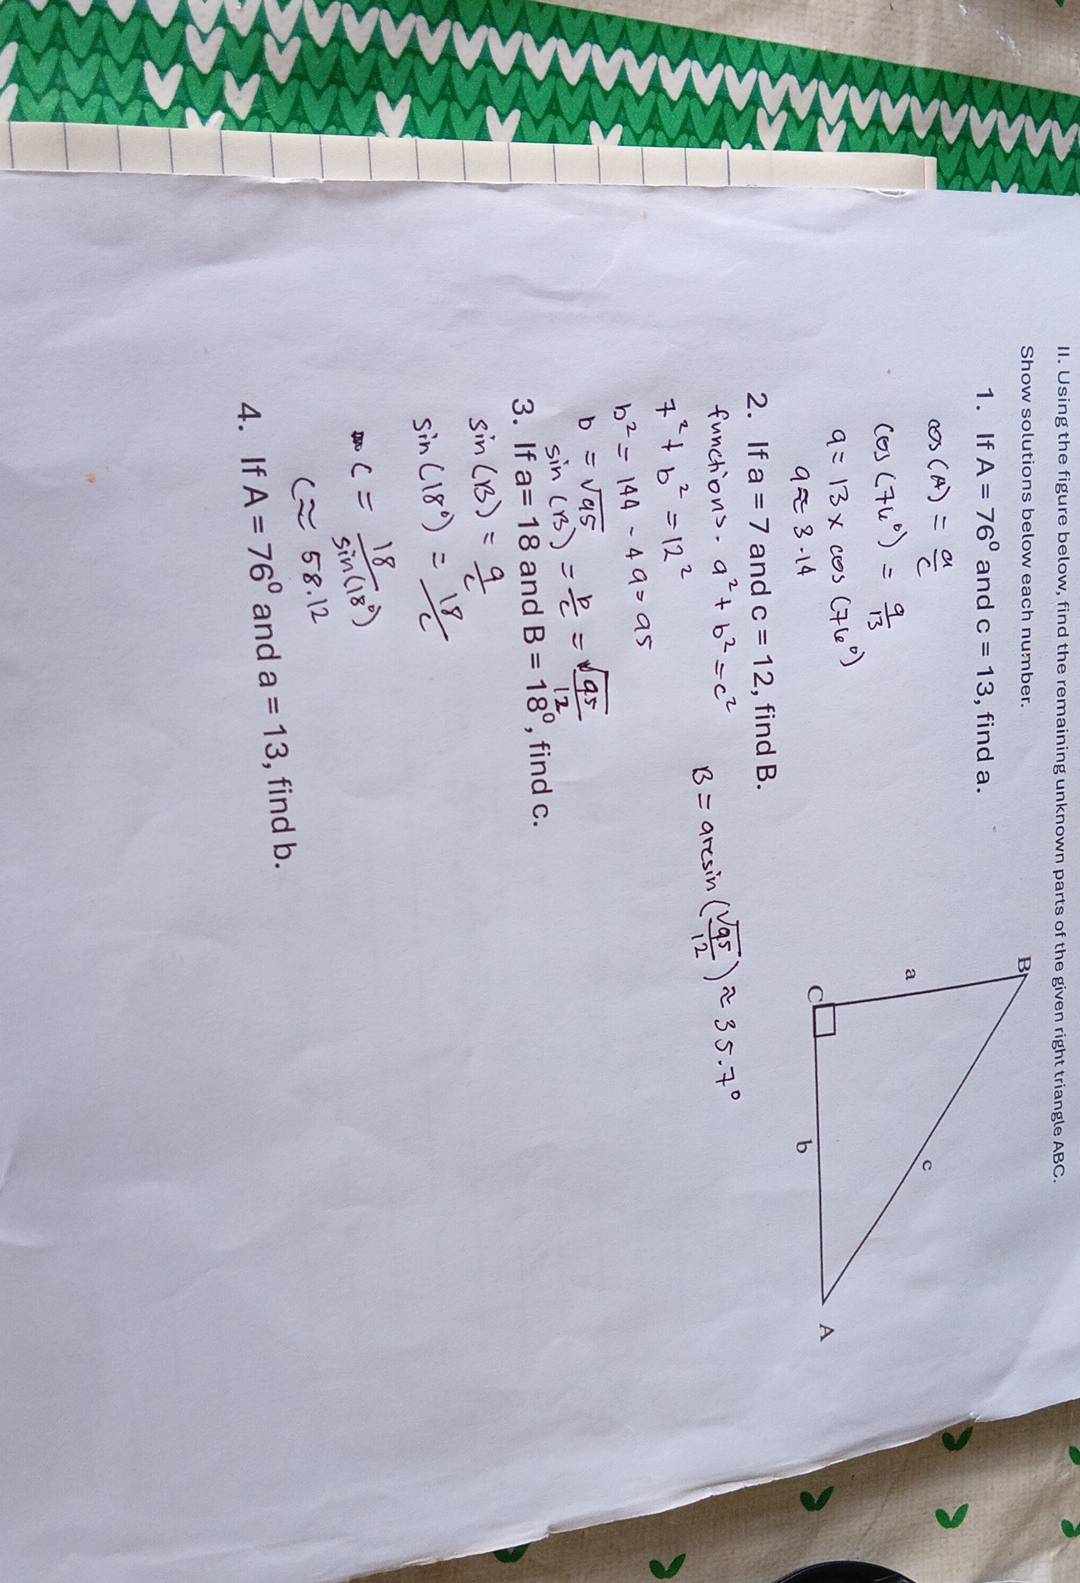 II. Using the figure below, find the remaining unknown parts of the given right triangle ABC.
Show solutions below each number.
1. If A = 76⁰ and c = 13, find a.
cos (A) = a/c
cos (76⁰) = a/13
a = 13 x cos (76⁰)
a ≈ 3.14
B
a
c
C
b
A
2. If a = 7 and c = 12, find B.
functions. a² + b² = c²
7² + b² = 12²
b² = 144 - 49 = 95
b = √95
sin (B) = b/c = √95/12
B = arcsin (√95/12) ≈ 35.7⁰
3. If a = 18 and B = 18⁰, find c.
sin (B) = a/c
sin (18⁰) = 18/c
c = 18/sin(18⁰)
c ≈ 58.12
4. If A = 76⁰ and a = 13, find b.